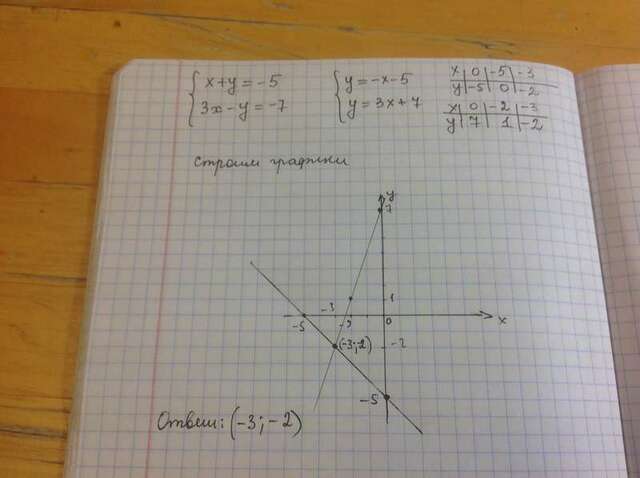 { x+y=-5
3x-y=-7
{ y=-x-5
y=3x+7
x | 0 | -5 | -3
y | -5 | 0 | -2
x | 0 | -2 | -3
y | 7 | 1 | -2
Строим графики
y
7
1
-3
-5 -2 0 x
(-3;-2) -2
-5
Ответ: (-3;-2)